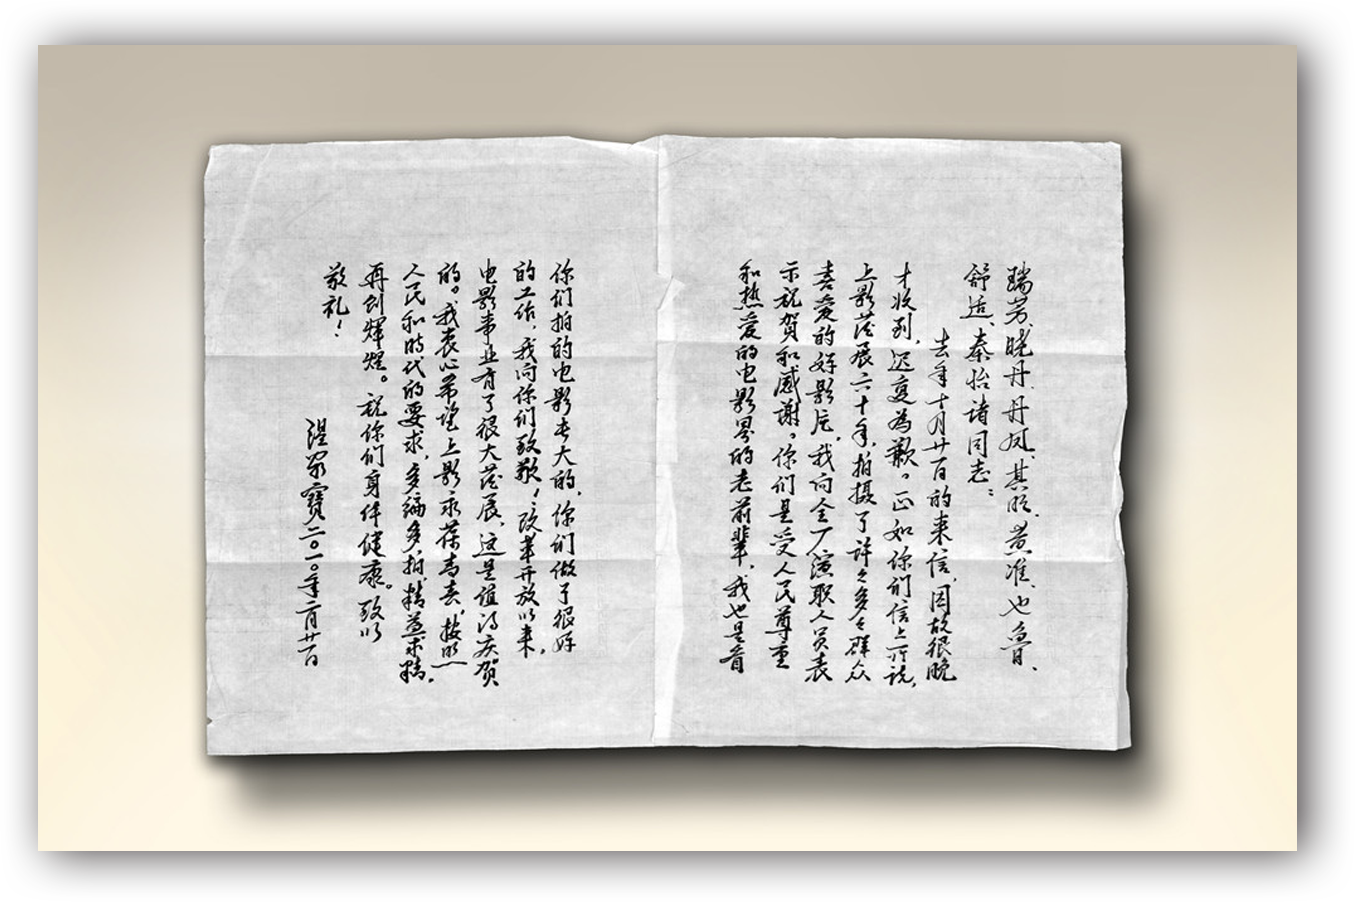 瑞芳、晓丹、丹凤、其明、黄准、也鲁、
舒适、秦怡诸同志：
去年十月廿一日的来信，因故很晚
才收到，迟复为歉。正如你们信上所说，
上影发展六十年，拍摄了许许多多群众
喜爱的好影片，我向全厂演职人员表
示祝贺和感谢。你们是受人民尊重
和热爱的电影界的老前辈，我也是看
你们拍的电影长大的，你们做了很好
的工作，我向你们致敬！改革开放以来，
电影事业有了很大发展，这是值得庆贺
的。我衷心希望上影永葆青春，按照
人民和时代的要求，多编多拍精益求精，
再创辉煌。祝你们身体健康。致以
敬礼！
温家宝 二〇一〇年一月廿一日